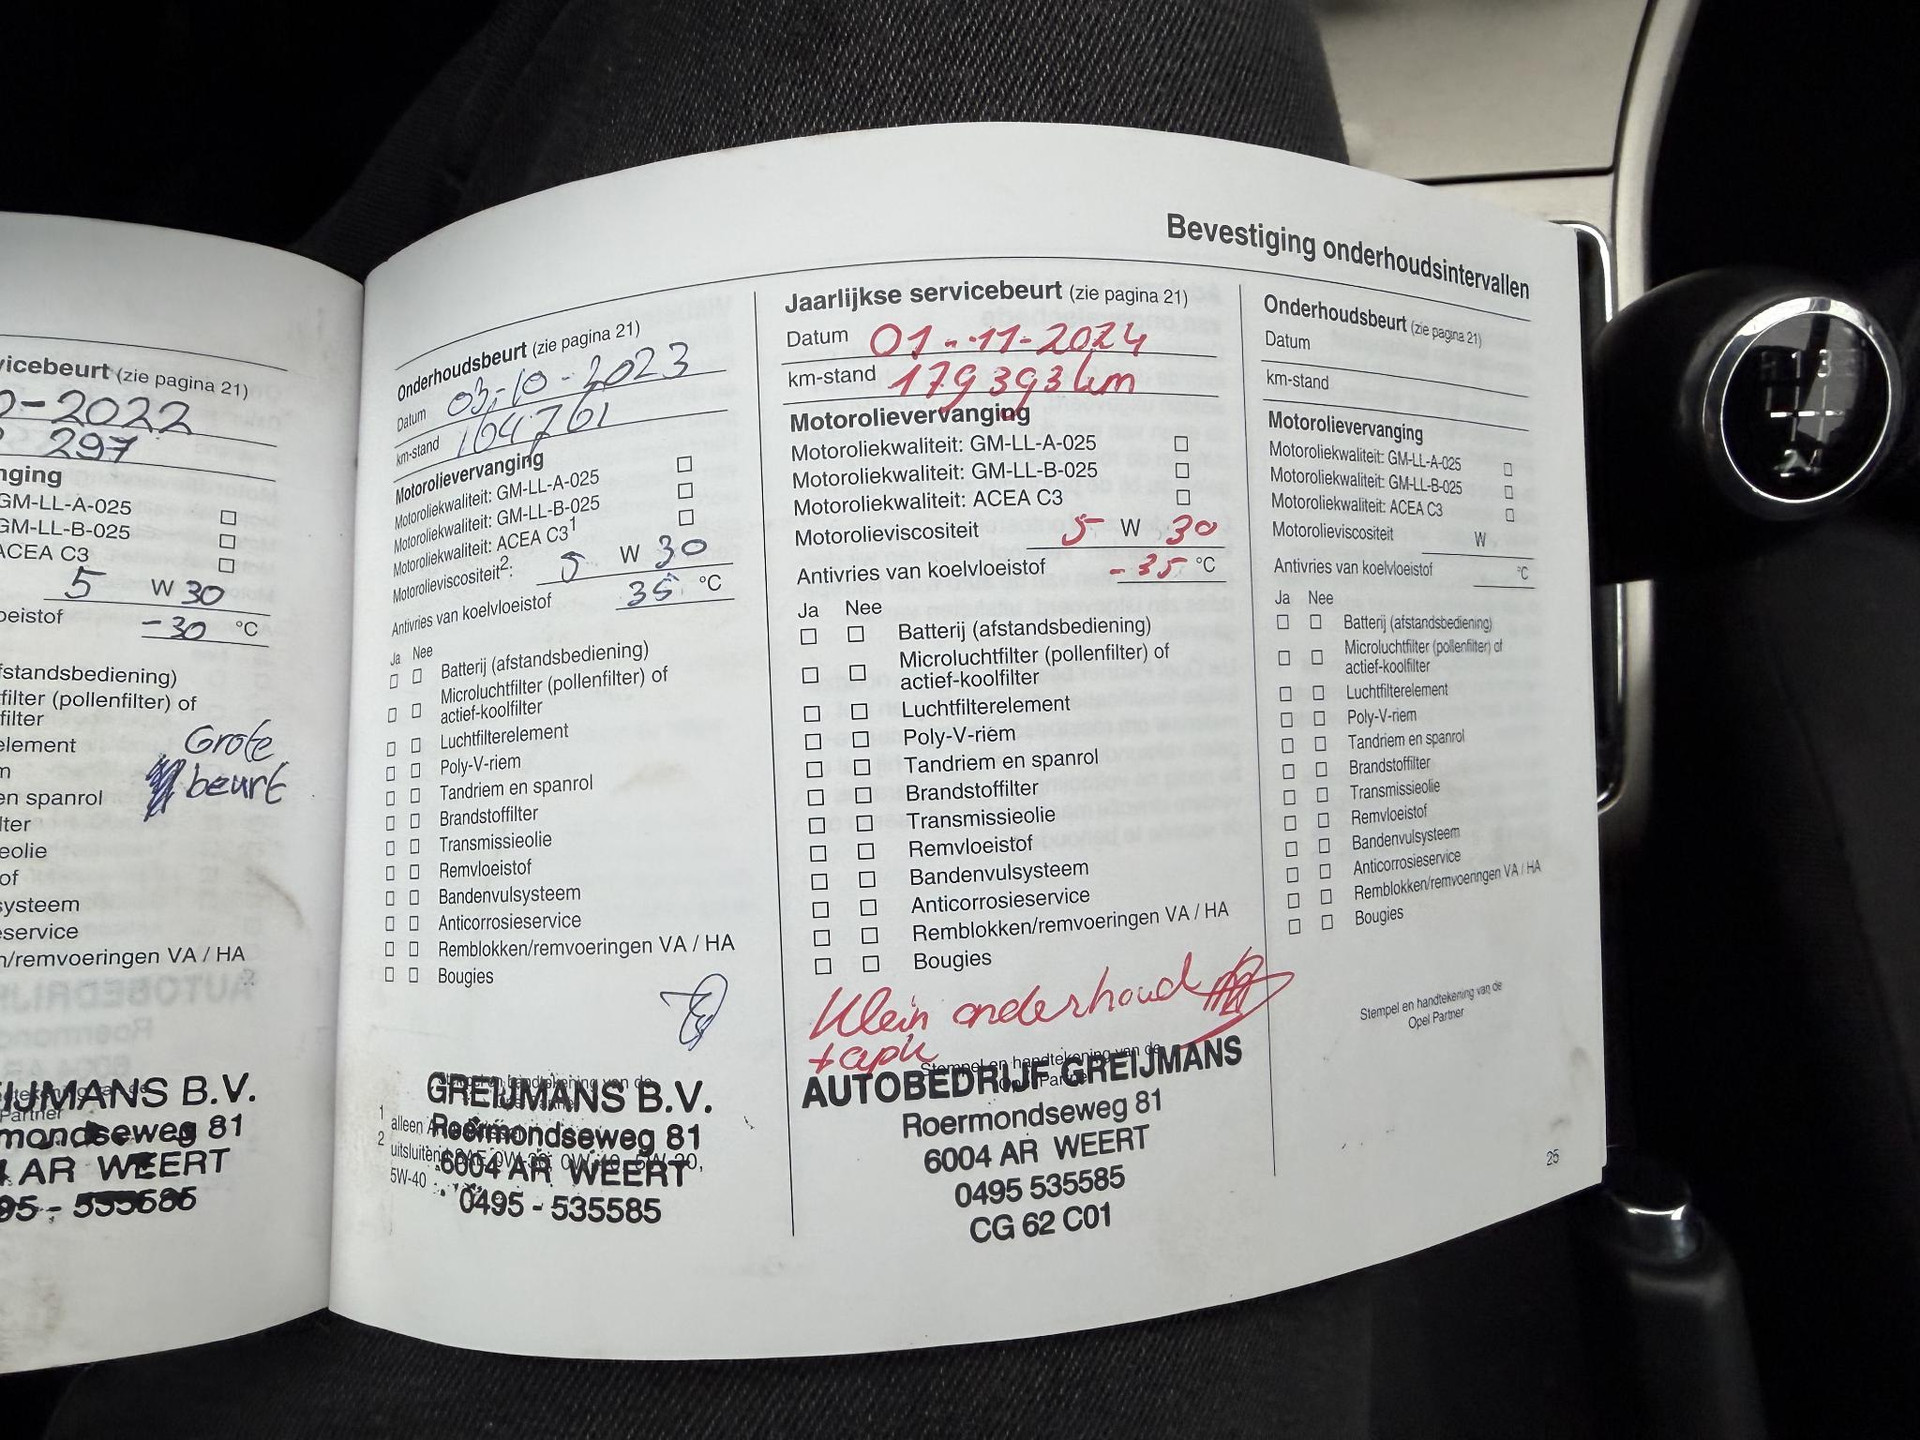 vicebeurt (zie pagina 21)
-2022
297
nging
GM-LL-A-025
GM-LL-B-025
ACEA C3
5 W 30
oeistof -30 °C
fstandsbediening)
filter (pollenfilter) of
filter
element
Grote
beurt
en spanrol
lter
eolie
of
systeem
eservice
n/remvoeringen VA / HA
IJMANS B.V.
Partner
mondseweg 81
AR WEERT
95 - 535585
Bevestiging onderhoudsintervallen
Onderhoudsbeurt (zie pagina 21)
Datum 03-10-2023
km-stand 164761
Motorolievervanging
Motoroliekwaliteit: GM-LL-A-025
Motoroliekwaliteit: GM-LL-B-025
Motoroliekwaliteit: ACEA C3¹
Motorolieviscositeit²: 5 W 30
Antivries van koelvloeistof 35 °C
Ja Nee
Batterij (afstandsbediening)
Microluchtfilter (pollenfilter) of
actief-koolfilter
Luchtfilterelement
Poly-V-riem
Tandriem en spanrol
Brandstoffilter
Transmissieolie
Remvloeistof
Bandenvulsysteem
Anticorrosieservice
Remblokken/remvoeringen VA / HA
Bougies
GREIJMANS B.V.
Roermondseweg 81
6004 AR WEERT
0495 - 535585
1 alleen
2 uitsluitend
5W-40
Jaarlijkse servicebeurt (zie pagina 21)
Datum 01-11-2024
km-stand 179393 km
Motorolievervanging
Motoroliekwaliteit: GM-LL-A-025
Motoroliekwaliteit: GM-LL-B-025
Motoroliekwaliteit: ACEA C3
Motorolieviscositeit 5 W 30
Antivries van koelvloeistof -35 °C
Ja Nee
Batterij (afstandsbediening)
Microluchtfilter (pollenfilter) of
actief-koolfilter
Luchtfilterelement
Poly-V-riem
Tandriem en spanrol
Brandstoffilter
Transmissieolie
Remvloeistof
Bandenvulsysteem
Anticorrosieservice
Remblokken/remvoeringen VA / HA
Bougies
Klein onderhoud
+ apk
Stempel en handtekening van de
AUTOBEDRIJF GREIJMANS
Roermondseweg 81
6004 AR WEERT
0495 535585
CG 62 C01
Onderhoudsbeurt (zie pagina 21)
Datum
km-stand
Motorolievervanging
Motoroliekwaliteit: GM-LL-A-025
Motoroliekwaliteit: GM-LL-B-025
Motoroliekwaliteit: ACEA C3
Motorolieviscositeit W
Antivries van koelvloeistof °C
Ja Nee
Batterij (afstandsbediening)
Microluchtfilter (pollenfilter) of
actief-koolfilter
Luchtfilterelement
Poly-V-riem
Tandriem en spanrol
Brandstoffilter
Transmissieolie
Remvloeistof
Bandenvulsysteem
Anticorrosieservice
Remblokken/remvoeringen VA / HA
Bougies
Stempel en handtekening van de
Opel Partner
25
R 1 3
2 4